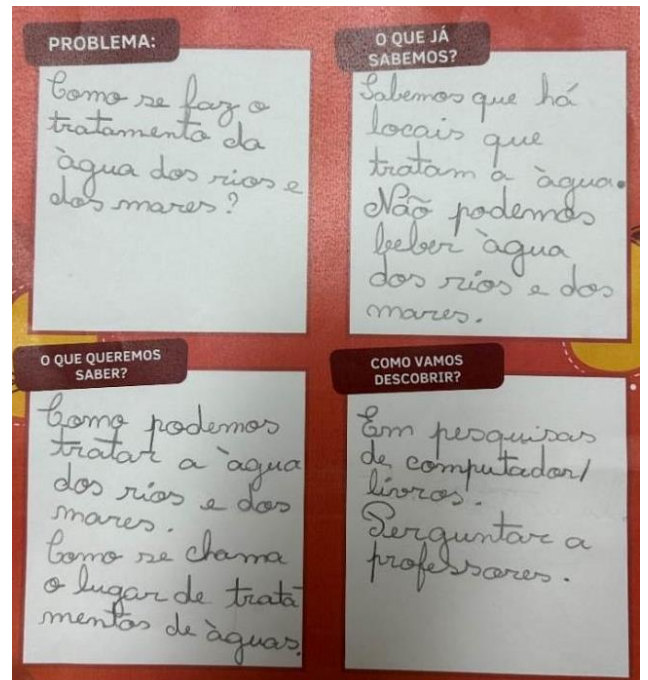 PROBLEMA:
Como se faz o
tratamento da
àgua dos rios e
dos mares?
O QUE JÁ
SABEMOS?
Sabemos que há
locais que
tratam a àgua.
Não podemos
beber àgua
dos rios e dos
mares.
O QUE QUEREMOS
SABER?
Como podemos
tratar a àgua
dos rios e dos
mares.
Como se chama
o lugar de trata
mentos de àguas.
COMO VAMOS
DESCOBRIR?
Em pesquisas
de computador/
livros.
Perguntar a
professores.